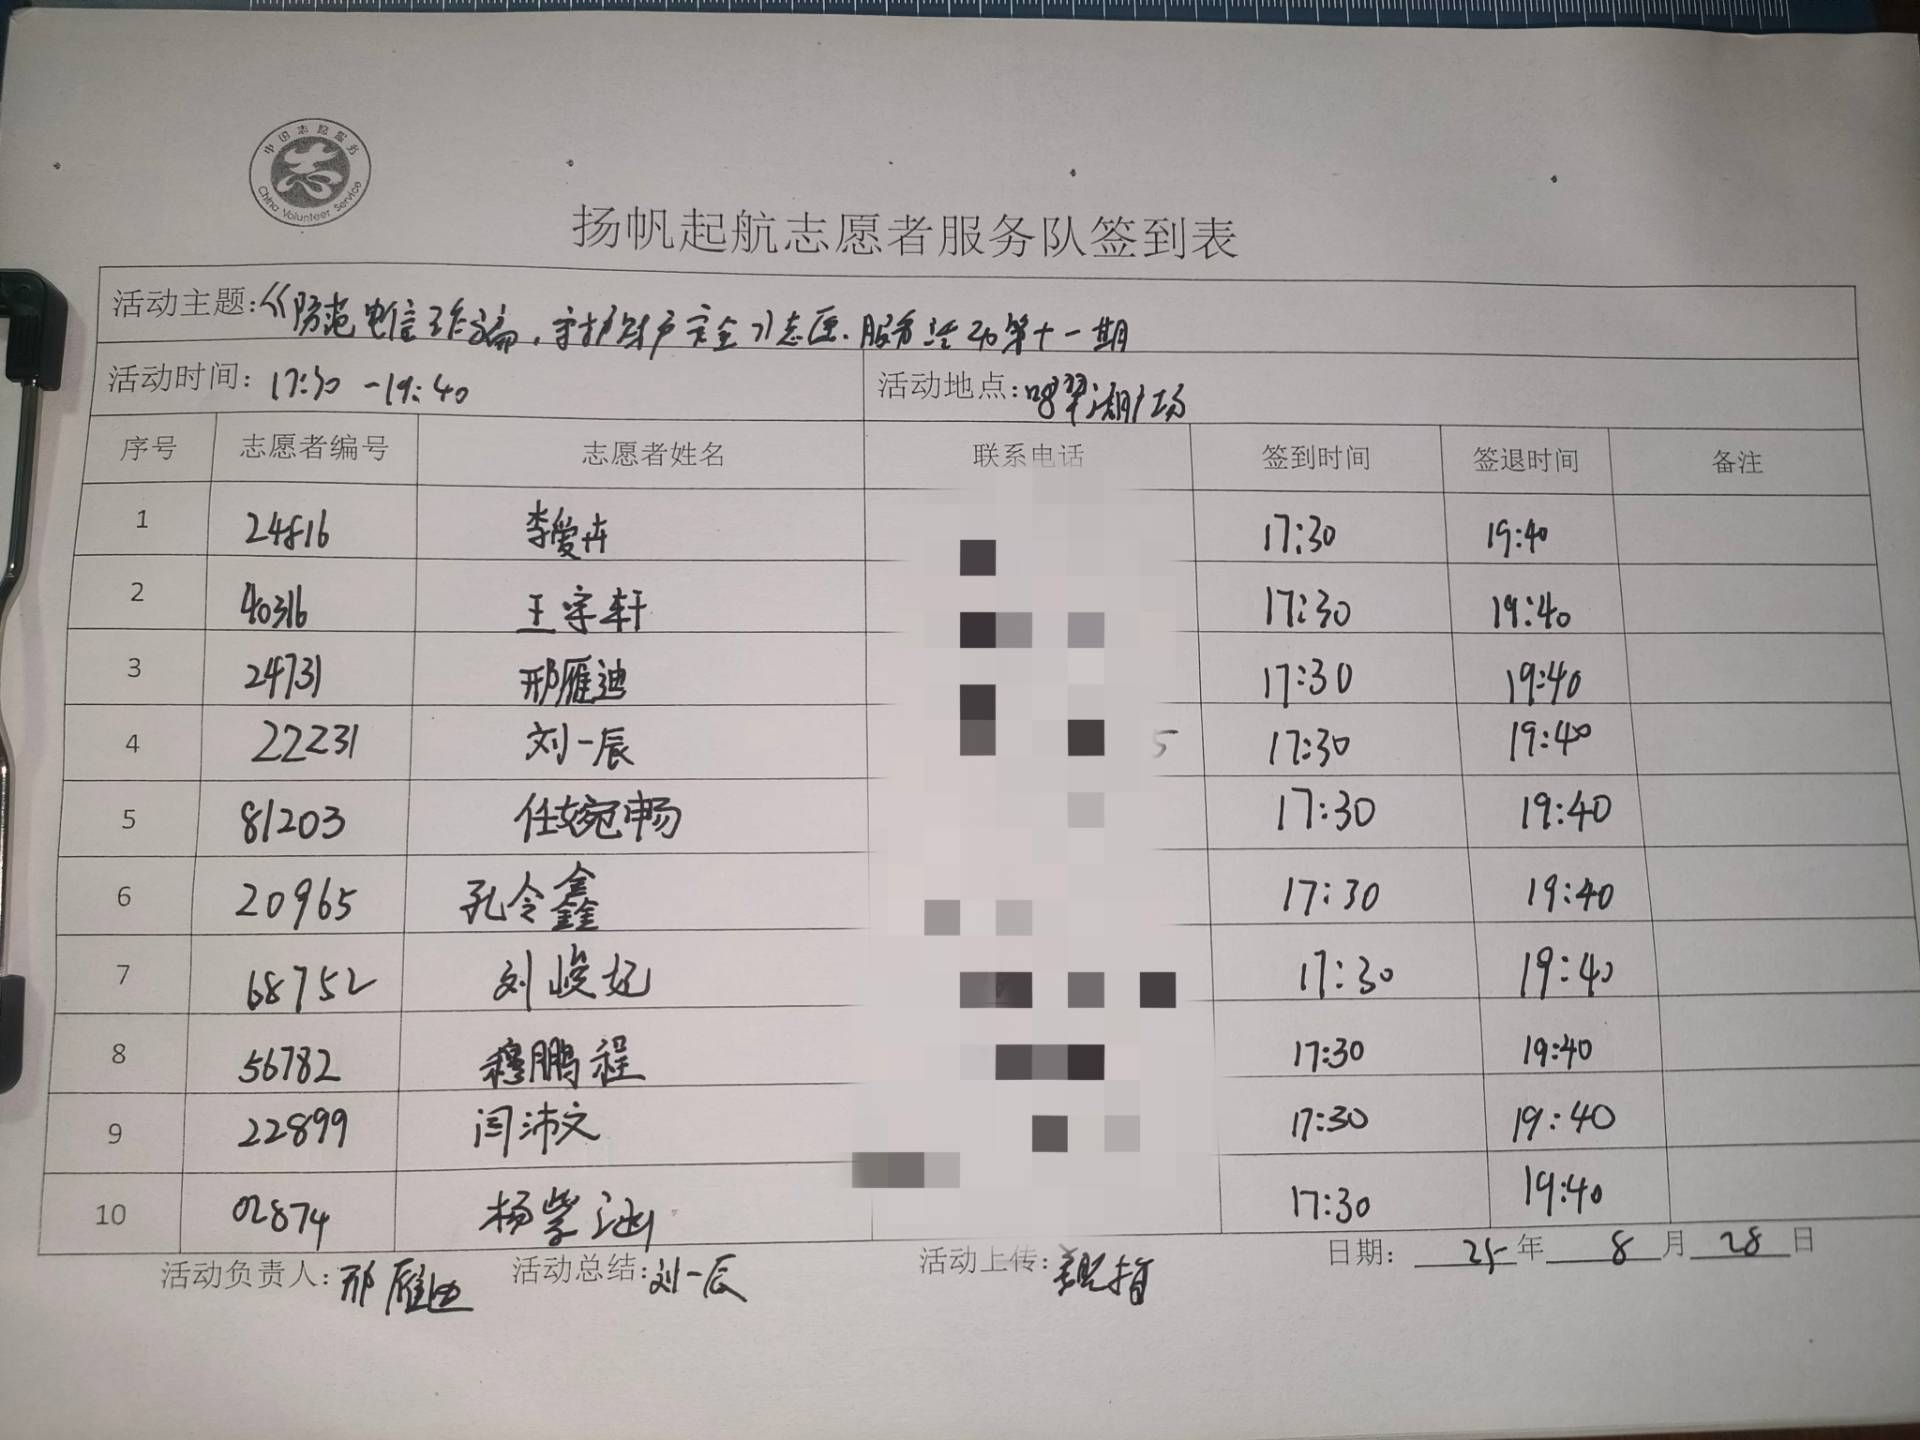 中国志愿服务
China Volunteer Service
扬帆起航志愿者服务队签到表
活动主题:《防范电信诈骗,守护财产安全》志愿服务活动第十一期
活动时间: 17:30 -19:40 活动地点: 翠湖广场
序号 志愿者编号 志愿者姓名 联系电话 签到时间 签退时间 备注
1 24816 李爱卉 17:30 19:40
2 40316 王宇轩 17:30 19:40
3 24731 邢雁迪 17:30 19:40
4 22231 刘一辰 5 17:30 19:40
5 81203 任婉畅 17:30 19:40
6 20965 孔令鑫 17:30 19:40
7 68752 刘峻妃 17:30 19:40
8 56782 穆鹏程 17:30 19:40
9 22899 闫沛文 17:30 19:40
10 02874 杨紫涵 17:30 19:40
活动负责人: 邢雁迪 活动总结: 刘一辰 活动上传: 日期: 25年 8月 28日